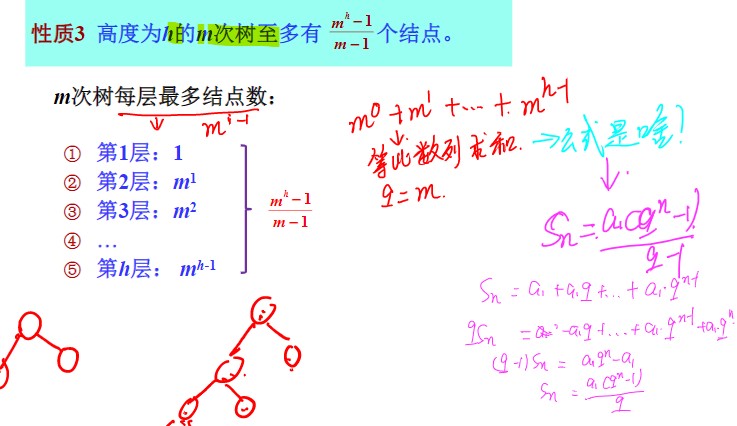 性质3 高度为h的m次树至多有 (m^h-1)/(m-1) 个结点。
m次树每层最多结点数：
m^i-1
① 第1层：1
② 第2层：m^1
③ 第3层：m^2
④ …
⑤ 第h层：m^h-1
(m^h-1)/(m-1)
m^0 + m^1 + … + m^h-1
等比数列求和. →公式是啥?
q=m.
Sn = a1(q^n-1)/(q-1)
Sn = a1 + a1q +… + a1·q^n-1
(q-1)Sn = a1q^n-a1
Sn = a1(q^n-1)/q